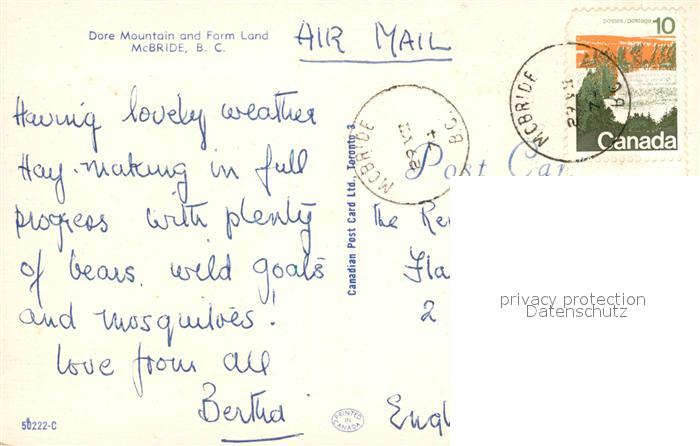 Dore Mountain and Farm Land
McBRIDE, B. C.
AIR MAIL
postes/postage 10
Canada
McBRIDE
B.C.
McBRIDE
B.C.
Having lovely weather
Hay-making in full
progress with plenty
of bears, wild goats
and mosquitoes!
love from all
Bertha
Canadian Post Card Ltd., Toronto 3
Post Car
the Re
Fla
2
Engl
privacy protection
Datenschutz
50222-C
PRINTED
IN
CANADA